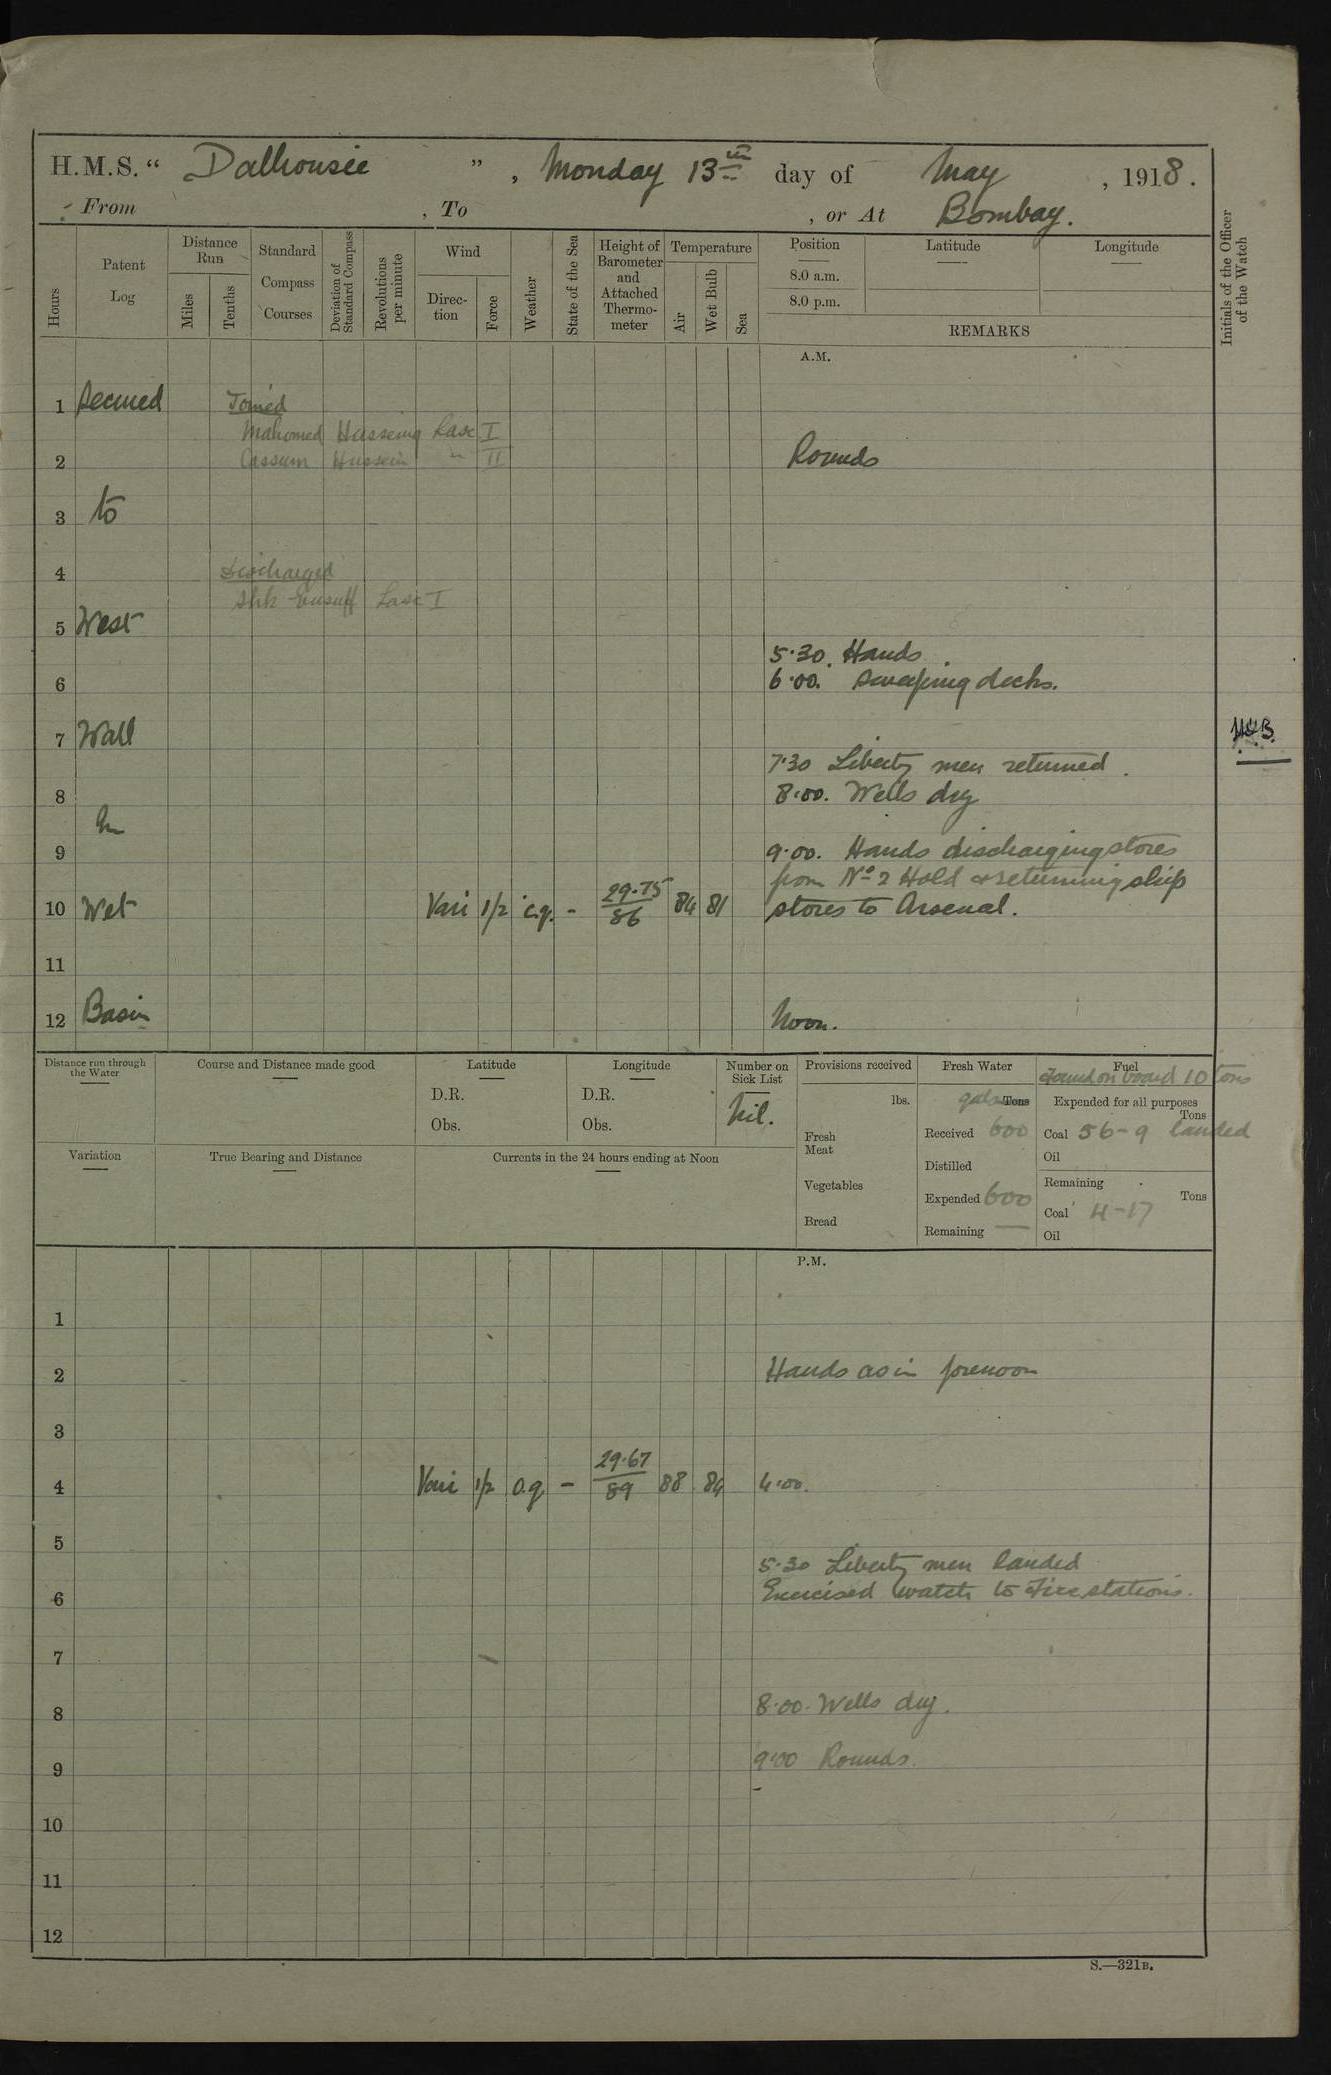 H.M.S. “ Dalhousie ” , Monday 13th day of May , 1918.
From , To , or At Bombay.
Hours
Patent Log
Distance Run
Miles
Tenths
Standard Compass Courses
Deviation of Standard Compass
Revolutions per minute
Wind
Direc-tion
Force
Weather
State of the Sea
Height of Barometer and Attached Thermo-meter
Temperature
Air
Wet Bulb
Sea
Position
8.0 a.m.
8.0 p.m.
Latitude
Longitude
REMARKS
Initials of the Officer of the Watch
A.M.
1 Secured Joined
Mahomed Hussein Lasc I
2 Cassum Hussein " II Rounds
3 to
4 Discharged
Shk Eusuff Lasc I
5 West
5.30. Hands.
6 6.00. Sweeping decks.
7 Wall
7.30 Liberty men returned.
8 8.00. Wells dry
In
9 9.00. Hands discharging stores
from No 2 Hold & returning ship
10 Wet Vari 1/2 c.g. - 29.75/86 84 81 stores to Arsenal.
11
12 Basin Noon.
Distance run through the Water
Course and Distance made good
Latitude
D.R.
Obs.
Longitude
D.R.
Obs.
Number on Sick List
Nil.
Provisions received
lbs.
Fresh Meat
Vegetables
Bread
Fresh Water
gals Tons
Received 600
Distilled
Expended 600
Remaining —
Fuel
Found on board 10 tons
Expended for all purposes
Tons
Coal 56-9 landed
Oil
Remaining
Tons
Coal 4-17
Oil
Variation
True Bearing and Distance
Currents in the 24 hours ending at Noon
P.M.
1
2 Hands as in forenoon
3
4 Vari 1/2 o.g - 29.67/89 88 84 4.00.
5
5.30 Liberty men landed
6 Exercised watch to Fire stations.
7
8 8.00. Wells dry.
9 9.00 Rounds.
10
11
12
S.—321B.